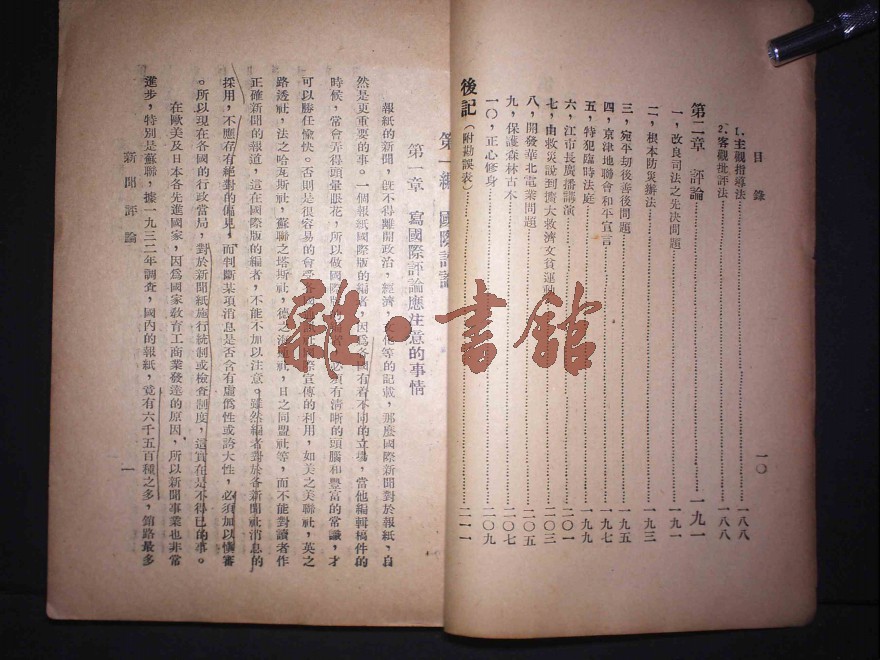 目錄
1.主觀指導法……一八八
2.客觀批評法……一八八
第二章 評論……一九一
一，改良司法之先決問題……一九一
二，根本防災辦法……一九三
三，宛平刧後善後問題……一九五
四，京津地聯會和平宣言……一九七
五，特犯臨時法庭……一九九
六，江市長廣播講演……二〇一
七，由救災說到擴大救濟文貧運動……二〇三
八，開發華北電業問題……二〇五
九，保護森林古木……二〇七
一〇，正心修身……二〇九
後記（附勘誤表）……二一一
一〇
第一編 國際評論
第一章 寫國際評論應注意的事情
報紙的新聞，旣不得離開政治，經濟，文化等的記載，那麼國際新聞對於報紙，自
然是更重要的事。一個報紙國際版的編者，因爲各國有着不同的立場，當他編輯稿件的
時候，常會弄得頭暈眼花，所以做國際版必須有清晰的頭腦和豐富的常識，才
可以勝任愉快。否則是很容易的會受國際宣傳的利用，如美之美聯社，英之
路透社，法之哈瓦斯社，蘇聯之塔斯社，德之海通社，日之同盟社等，而不能對讀者作
正確新聞的報道，這在國際版的編者，不能不加以注意。雖然編者對於各新聞社消息的
採用，不應存有絕對的偏見，而判斷某項消息是否含有虛僞性或誇大性，必須加以愼審
。所以現在各國的行政當局，對於新聞紙施行統制或檢查制度，這實在是不得已的事。
在歐美及日本各先進國家，因爲國家敎育工商業發達的原因，所以新聞事業也非常
進步，特別是蘇聯，據一九三二年調查，國內的報紙，竟有六千五百種之多，銷路最多
新聞評論
一
雜·書館